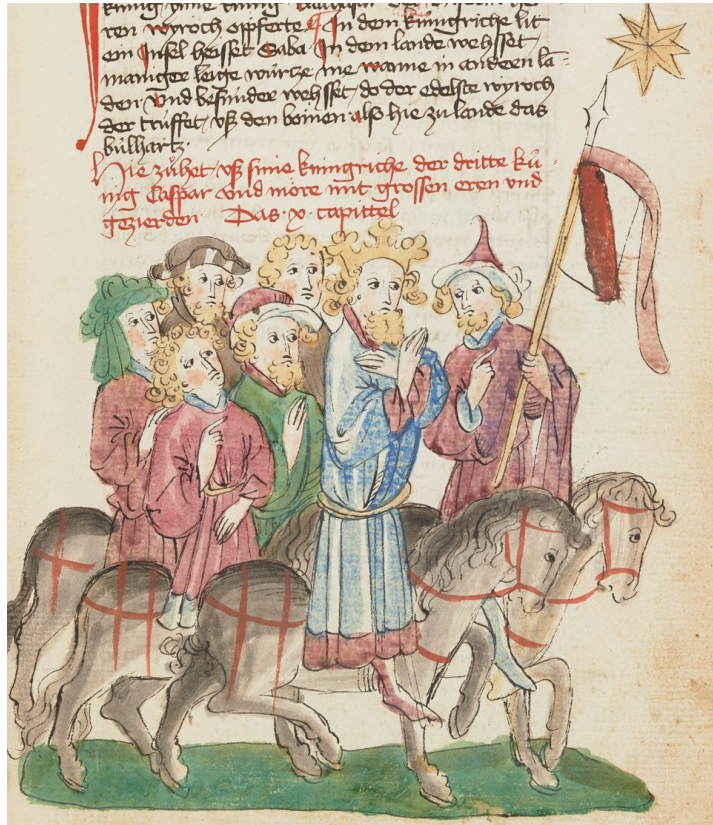 ren wyroch opfferte In dem kunigriche lit
ein Insel heisset Saba In dem lande wehsset
maniger leige würtze me wanne in anderen la-
den Vnd besunder wehsset do der edelste wyroch
der trüffet vß den boimen alß hie zu lande das
bulhartz
Hie zühet vß sime kunigriche der dritte kü-
nig Caspar vnd more mit grossen eren vnd
gezierden Das x capittel